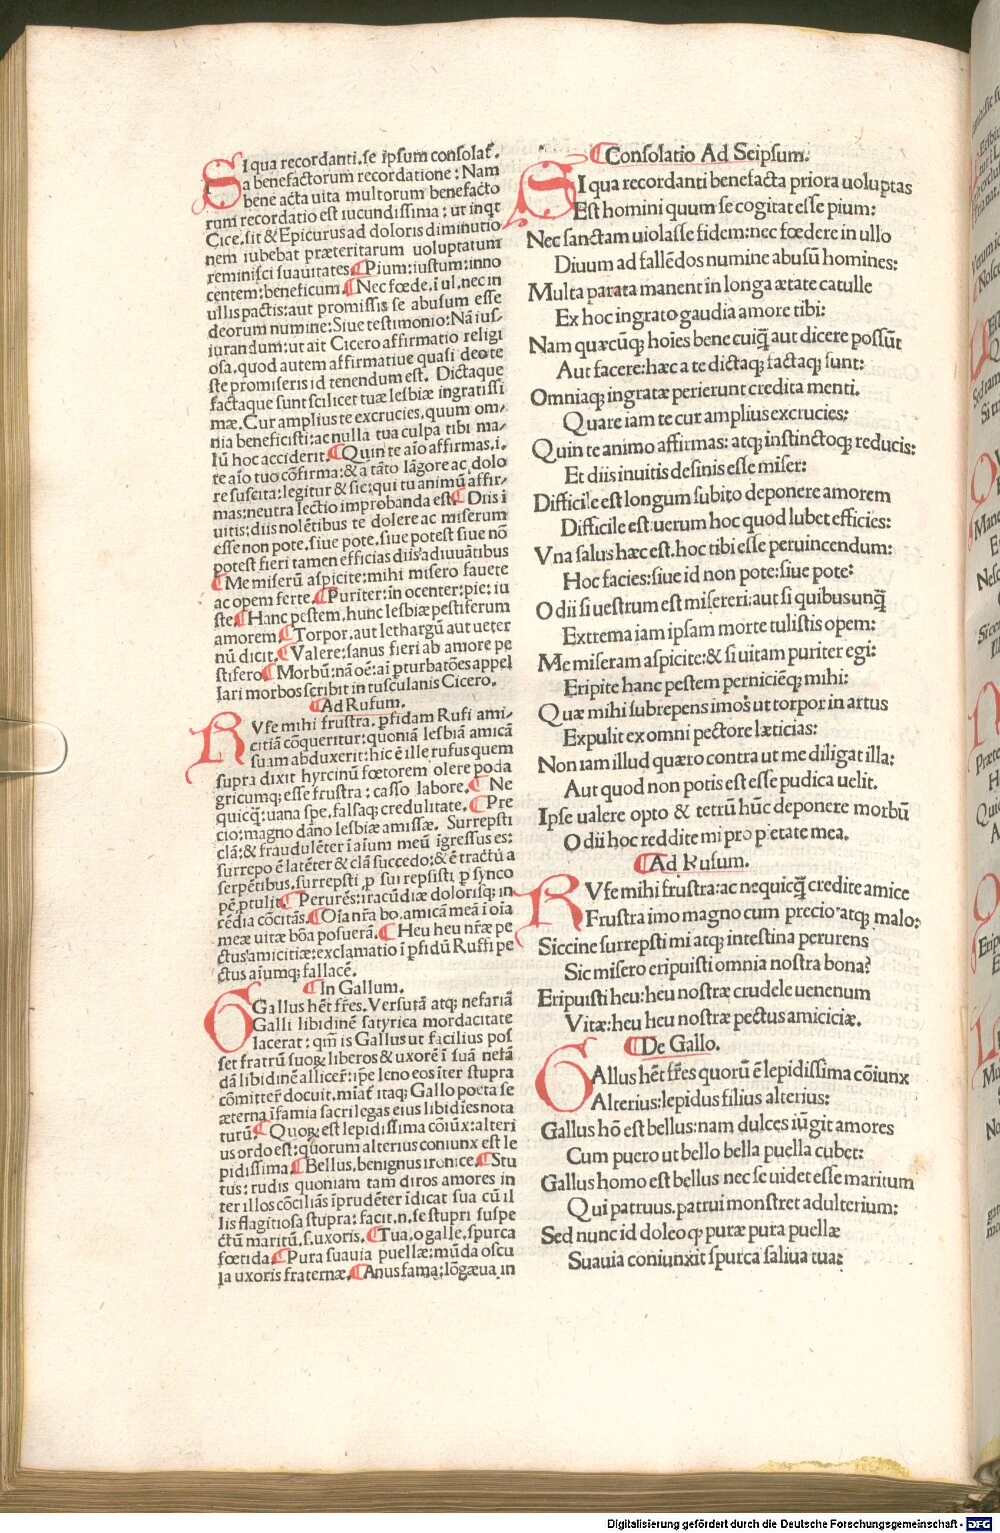 SI qua recordanti.se ipsum consolat̃.
a benefactorum recordatione: Nam
bene acta uita multorum benefacto
rum recordatio est iucundissima: ut inqt
Cice.sit & Epicurus ad doloris diminutio
nem iubebat præteritarum uoluptatum
reminisci suauitates. ¶Pium:iustum:inno
centem:beneficum. ¶Nec fœde.i ul.nec in
ullis pactis:aut promissis se abusum esse
deorum numine:Siue testimonio:Nā ius/
iurandum:ut ait Cicero affirmatio religi
osa.quod autem affirmatiue quasi deo te
ste promiseris id tenendum est. Dictaque
factaque sunt scilicet tuæ lesbiæ ingratissi
mæ. Cur amplius te excrucies, quum om/
nia beneficisti:ac nulla tua culpa tibi ma/
lū hoc acciderit. ¶Quin te aīo affirmas.i.
te aīo tuo cōfirma:& a tāto lāgore ac dolo
re suscita:legitur & sic:qui tu animū affir/
mas:neutra lectio improbanda est ¶Diis i
uitis:diis nolētibus te dolere ac miserum
esse non pote.siue pote.siue potest siue nō
potest fieri tamen efficias diis adiuuātibus
¶Me miserū aspicite:mihi misero fauete
ac opem ferte. ¶Puriter:in ocenter:pie:iu
ste. ¶Hanc pestem.hunc lesbiæ pestiferum
amorem. ¶Torpor.aut lethargū aut ueter
nū dicit. ¶Valere:sanus fieri ab amore pe
stifero ¶Morbū:nā oē:ai pturbatōes appel
lari morbos scribit in tusculanis Cicero.
¶Ad Rufum.
RVfe mihi frustra. pfidam Rufi ami/
citiā cōqueritur:quoniā lesbiā amicā
suam abduxerit:hic ē ille rufus quem
supra dixit hyrcinū fœtorem olere poda
gricumq; esse frustra: casso labore. ¶Ne
quicq̄:uana spe.falsaq; credulitate. ¶Pre
cio:magno dāno lesbiæ amissæ. Surrepsti
clā:& fraudulēter ī aīum meū īgressus es:
surrepo ē latēter & clā succedo:& ē tractū a
serpētibus.surrepsti p surrepsisti p synco
pē ptulit. ¶Perurēs:iracūdiæ dolorisq; in
cēdia cōcitās. ¶Oīa nr̄a bo.amicā meā ī oīa
meæ uitæ bōa posuerā. ¶Heu heu nr̄æ pe
ctus amicitiæ:exclamatio ī pfidū Ruffi pe
ctus aīumq; fallacē.
¶In Gallum.
GGallus hēt fr̄es. Versutā atq; nefariā
Galli libidinē satyrica mordacitate
lacerat: qm̄ is Gallus ut facilius pos
set fratrū suoꝝ liberos & uxorē ī suā nefā
dā libidinē allicer̄:ipe leno eos iter stupra
cōmitter̄ docuit.miat̄ itaq; Gallo poeta se
æterna īfamia sacrilegas eius libidīes nota
turū. ¶Quoꝝ est lepidissima cōiūx:alteri
us ordo est:quorum alterius coniunx est le
pidissima. ¶Bellus.benignus ironice. ¶Stu
tus:rudis quoniam tam diros amores in
ter illos cōciliās īprudēter īdicat sua cū il
lis flagitiosa stupra:facit.n.se stupri suspe
ctū maritū.s.uxoris. ¶Tua.o galle.spurca
fœtida. ¶Pura suauia puellæ:mūda oscu
la uxoris fraternæ. ¶Anus fama:lōgæua in
¶Consolatio Ad Seipsum.
SI qua recordanti benefacta priora uoluptas
Est homini quum se cogitat esse pium:
Nec sanctam uiolasse fidem:nec fœdere in ullo
Diuum ad fallēdos numine abusū homines:
Multa parata manent in longa ætate catulle
Ex hoc ingrato gaudia amore tibi:
Nam quæcūq; hoīes bene cuiq̄ aut dicere possūt
Aut facere:hæc a te dictaq; factaq; sunt:
Omniaq; ingratæ perierunt credita menti.
Quare iam te cur amplius excrucies:
Quin te animo affirmas: atq; instinctoq; reducis:
Et diis inuitis desinis esse miser:
Difficile est longum subito deponere amorem
Difficile est:uerum hoc quod lubet efficies:
Vna salus hæc est.hoc tibi esse peruincendum:
Hoc facies:siue id non pote:siue pote:
O dii si uestrum est misereri:aut si quibusunq̄
Extrema iam ipsam morte tulistis opem:
Me miseram aspicite:& si uitam puriter egi:
Eripite hanc pestem perniciēq; mihi:
Quæ mihi subrepens imos ut torpor in artus
Expulit ex omni pectore læticias:
Non iam illud quæro contra ut me diligat illa:
Aut quod non potis est esse pudica uelit.
Ipse ualere opto & tetrū hūc deponere morbū
O dii hoc reddite mi pro pietate mea.
¶Ad Rufum.
RVfe mihi frustra:ac nequicq̄ credite amice
Frustra imo magno cum precio atq; malo:
Siccine surrepsti mi atq; intestina perurens
Sic misero eripuisti omnia nostra bona?
Eripuisti heu:heu nostræ crudele uenenum
Vitæ:heu heu nostræ pectus amiciciæ.
¶De Gallo.
GAllus hēt fr̄es quorū ē lepidissima cōiunx
Alterius:lepidus filius alterius:
Gallus hō est bellus:nam dulces iūgit amores
Cum puero ut bello bella puella cubet:
Gallus homo est bellus nec se uidet esse maritum
Qui patruus.patrui monstret adulterium:
Sed nunc id doleo q̄ puræ pura puellæ
Suauia coniunxit spurca saliua tua:
Digitalisierung gefördert durch die Deutsche Forschungsgemeinschaft - DFG